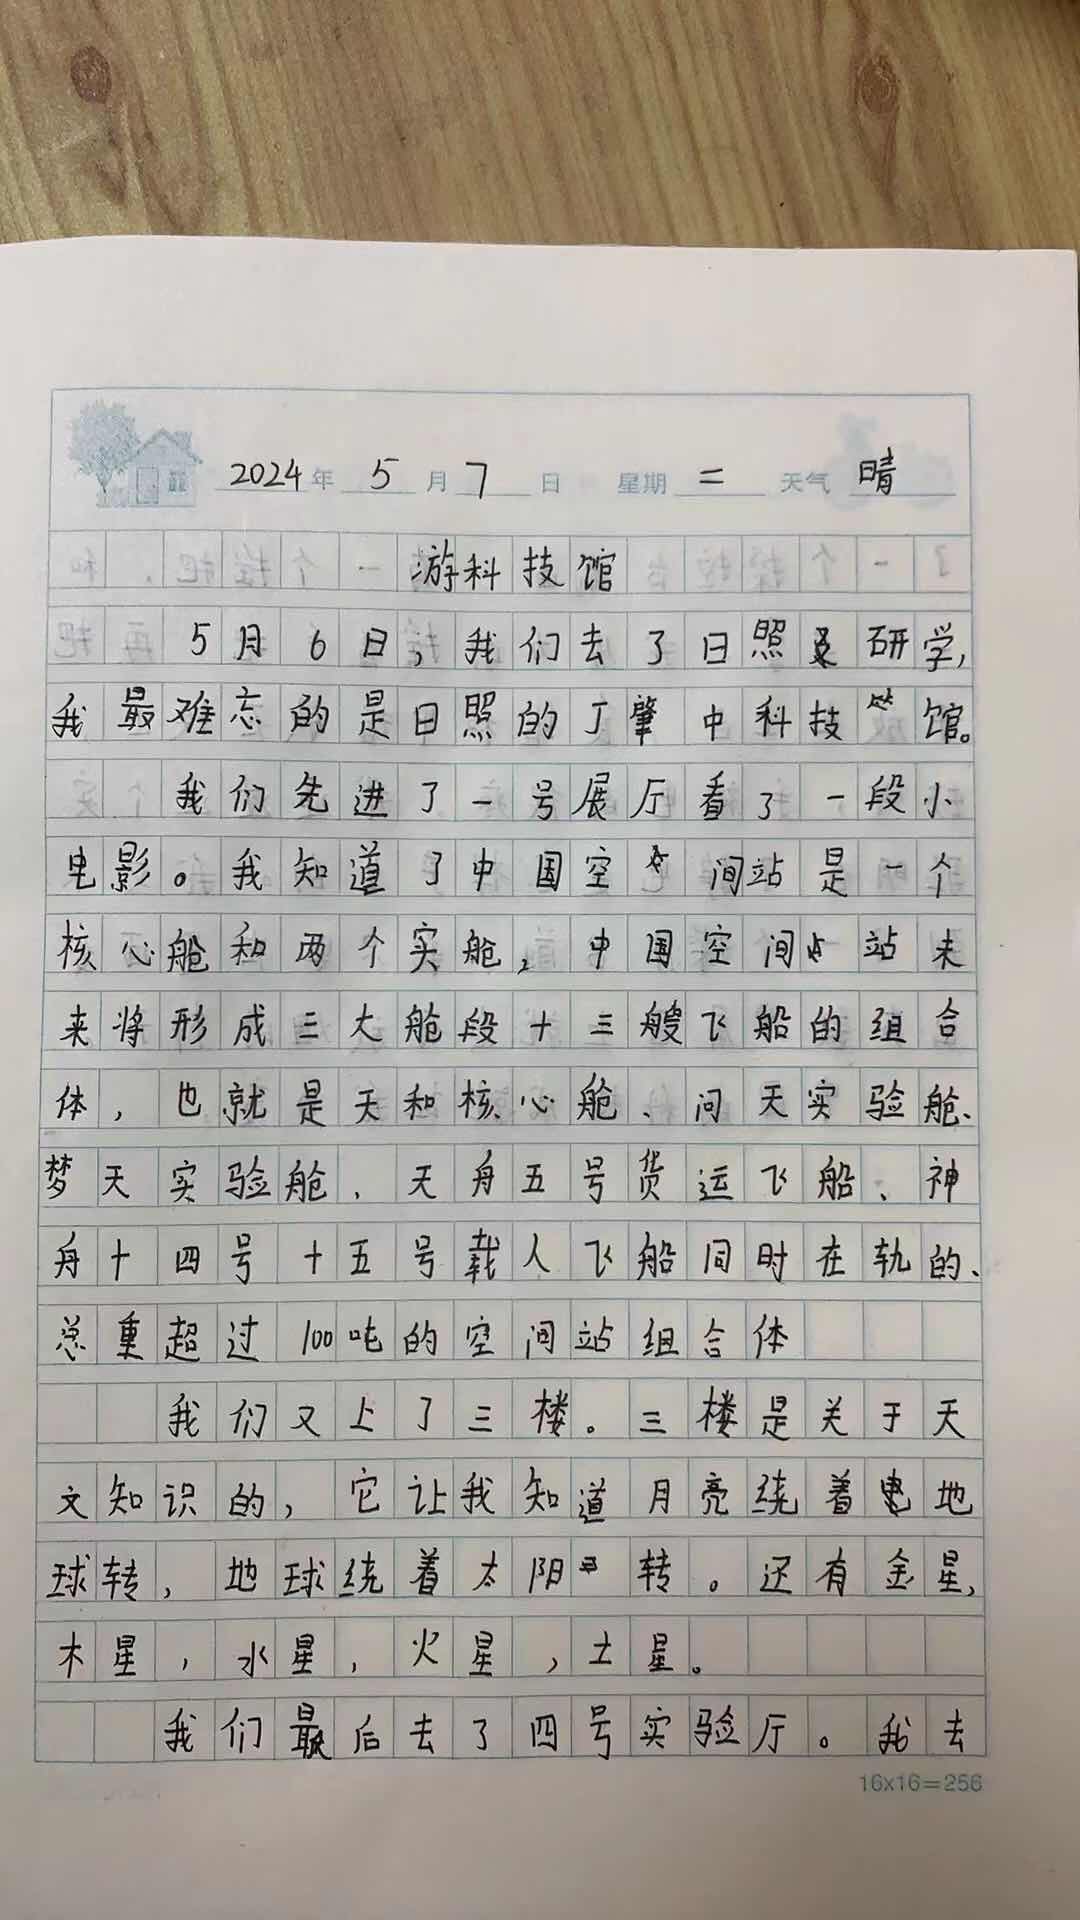 2024年 5月 7日 星期 二 天气 晴
游科技馆
5月6日，我们去了日照研学，
我最难忘的是日照的丁肇中科技馆。
我们先进了一号展厅看了一段小
电影。我知道了中国空间站是一个
核心舱和两个实舱，中国空间站未
来将形成三大舱段十三艘飞船的组合
体，也就是天和核心舱、问天实验舱、
梦天实验舱、天舟五号货运飞船、神
舟十四号十五号载人飞船同时在轨的、
总重超过100吨的空间站组合体
我们又上了三楼。三楼是关于天
文知识的，它让我知道月亮绕着地
球转，地球绕着太阳转。还有金星，
木星，水星，火星，土星。
我们最后去了四号实验厅。我去
16x16=256